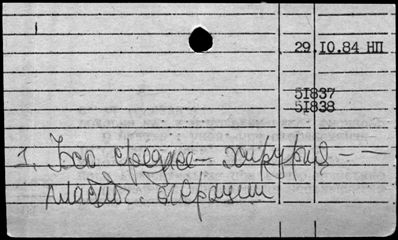 29.10.84 НП
51837
51838
1. Ухо среднее – хирургия –
пластич. операции